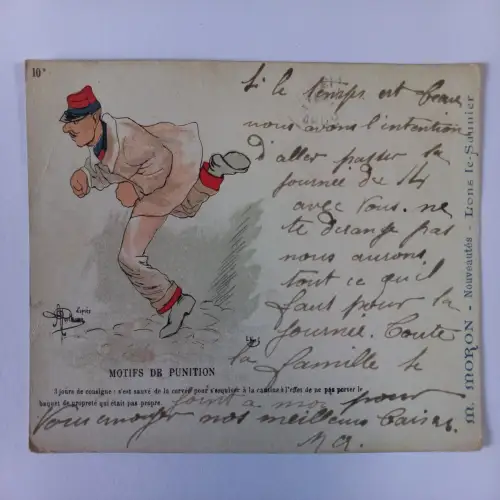 10e
Si le temps est beau
nous avons l'intention
d'aller passer la
journée du 14
avec vous. ne
te dérange pas
nous aurons
tout ce qu'il
faut pour la
journée. Toute
la famille se
joint à moi pour
vous envoyer nos meilleurs baisers.
d'après
MOTIFS DE PUNITION
3 jours de consigne : s'est sauvé de la corvée pour s'esquiver à la cantine à l'effet de ne pas porter le
baquet de propreté qui était pas propre.
M. MORON - Nouveautés - Lons-le-Saunier